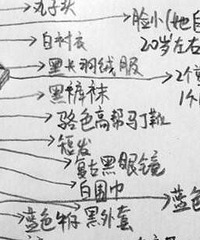 丸子头
脸小(她自
白衬衣
20岁左右
黑长羽绒服
2个
黑裤袜
1个
骆色高帮马丁靴
短发
复古黑眼镜
白围巾
蓝色
蓝色牛仔
黑外套